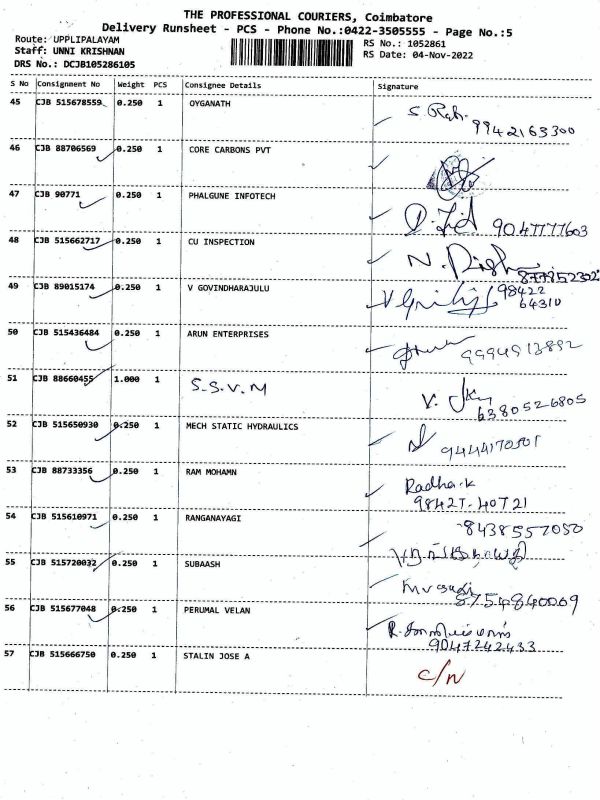 THE PROFESSIONAL COURIERS, Coimbatore
Delivery Runsheet - PCS - Phone No.:0422-3505555 - Page No.:5
Route: UPPLIPALAYAM
Staff: UNNI KRISHNAN
DRS No.: DCJB105286105
RS No.: 1052861
RS Date: 04-Nov-2022
S No Consignment No Weight PCS Consignee Details Signature
45 CJB 515678559 0.250 1 OYGANATH
9942163300
46 CJB 88706569 0.250 1 CORE CARBONS PVT
47 CJB 90771 0.250 1 PHALGUNE INFOTECH
9047777603
48 CJB 515662717 0.250 1 CU INSPECTION
877952302
49 CJB 89015174 0.250 1 V GOVINDHARAJULU
98422
64310
50 CJB 515436484 0.250 1 ARUN ENTERPRISES
9994913892
51 CJB 88660455 1.000 1 S.S.V.M
6380526805
52 CJB 515650930 0.250 1 MECH STATIC HYDRAULICS
53 CJB 88733356 0.250 1 RAM MOHAMN
Radha.K
54 CJB 515610971 0.250 1 RANGANAYAGI
8438557050
55 CJB 515720032 0.250 1 SUBAASH
8754840069
56 CJB 515677048 0.250 1 PERUMAL VELAN
9047242433
57 CJB 515666750 0.250 1 STALIN JOSE A
C/N